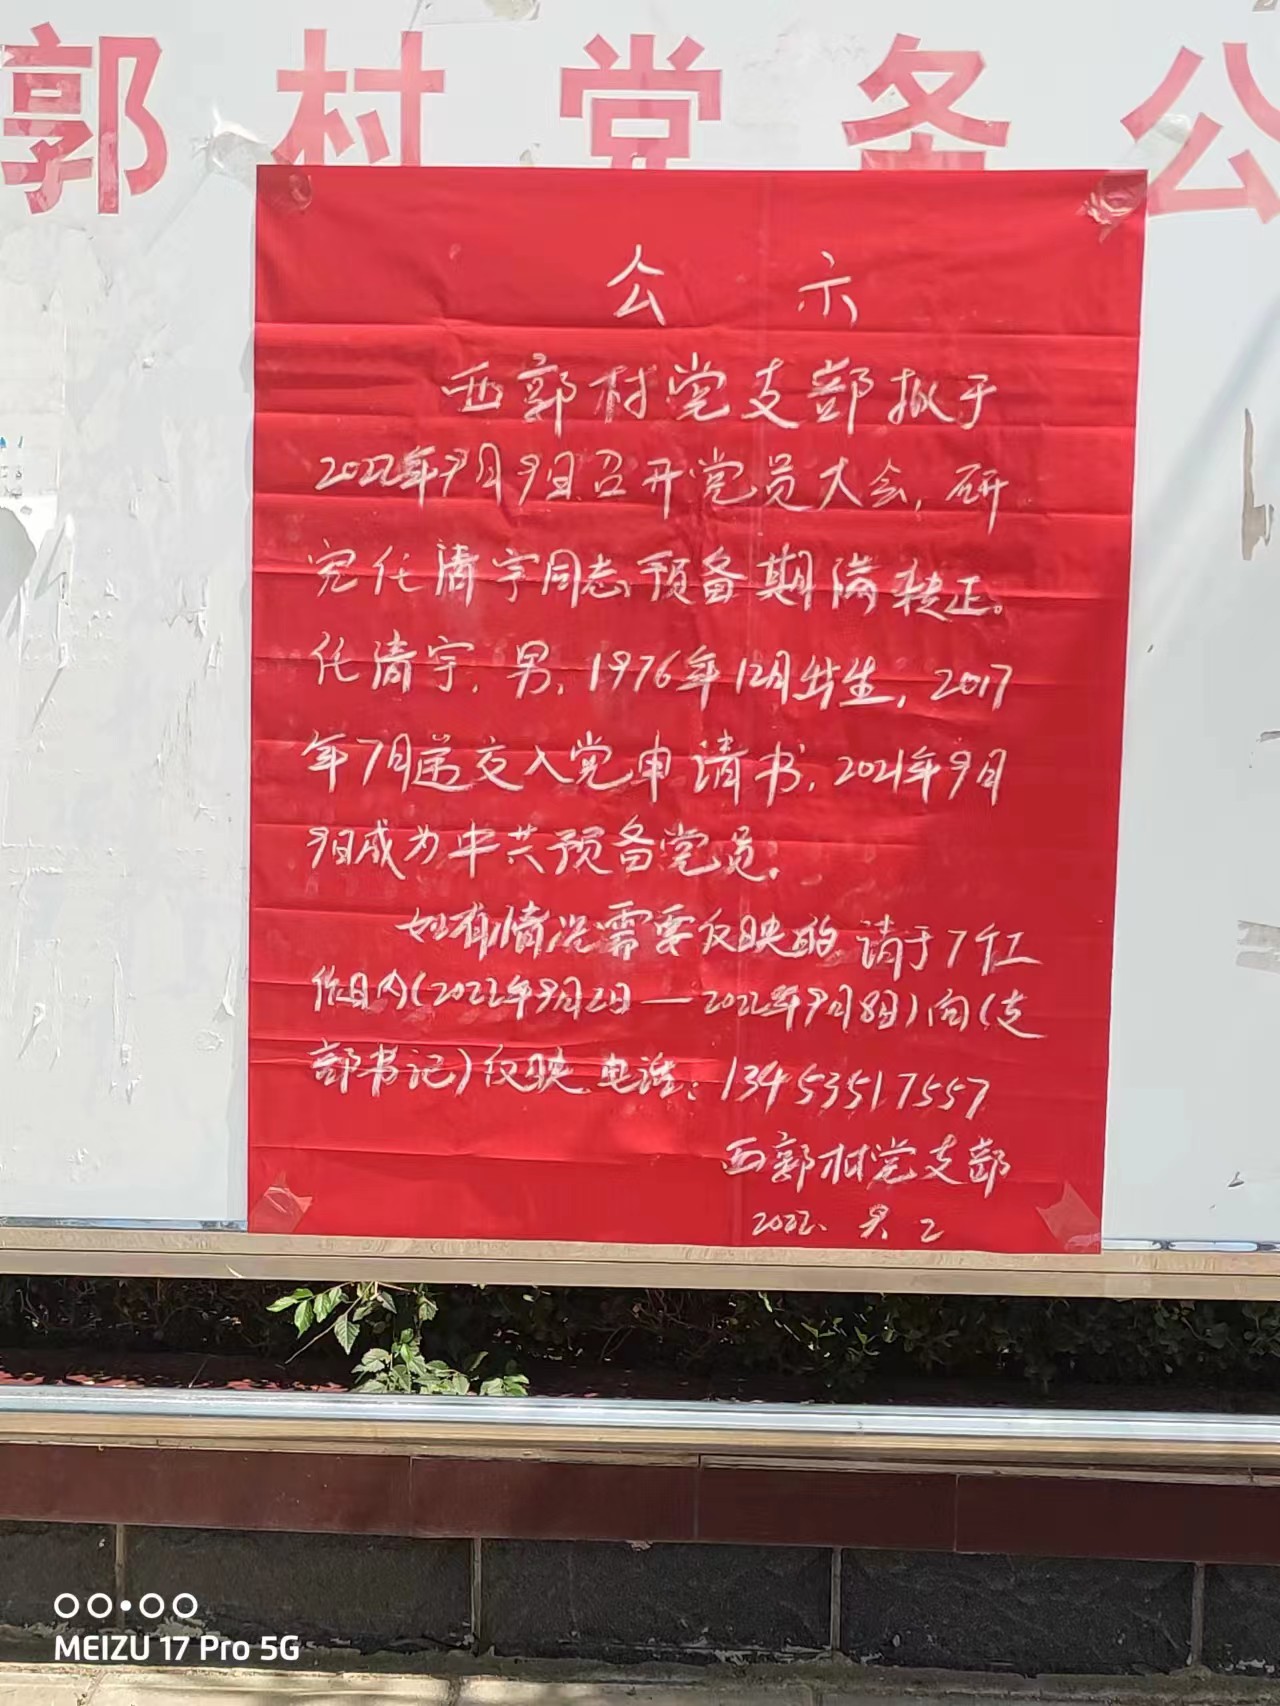 郭村党务公
公示
西郭村党支部拟于
2022年9月9日召开党员大会,研
究任清宇同志预备期满转正。
任清宇,男,1976年12月出生,2017
年7月递交入党申请书,2021年9月
9日成为中共预备党员。
如有情况需要反映的,请于7个工
作日内(2022年9月2日—2022年9月8日)向(支
部书记)反映,电话:13453517557
西郭村党支部
2022、9、2
MEIZU 17 Pro 5G